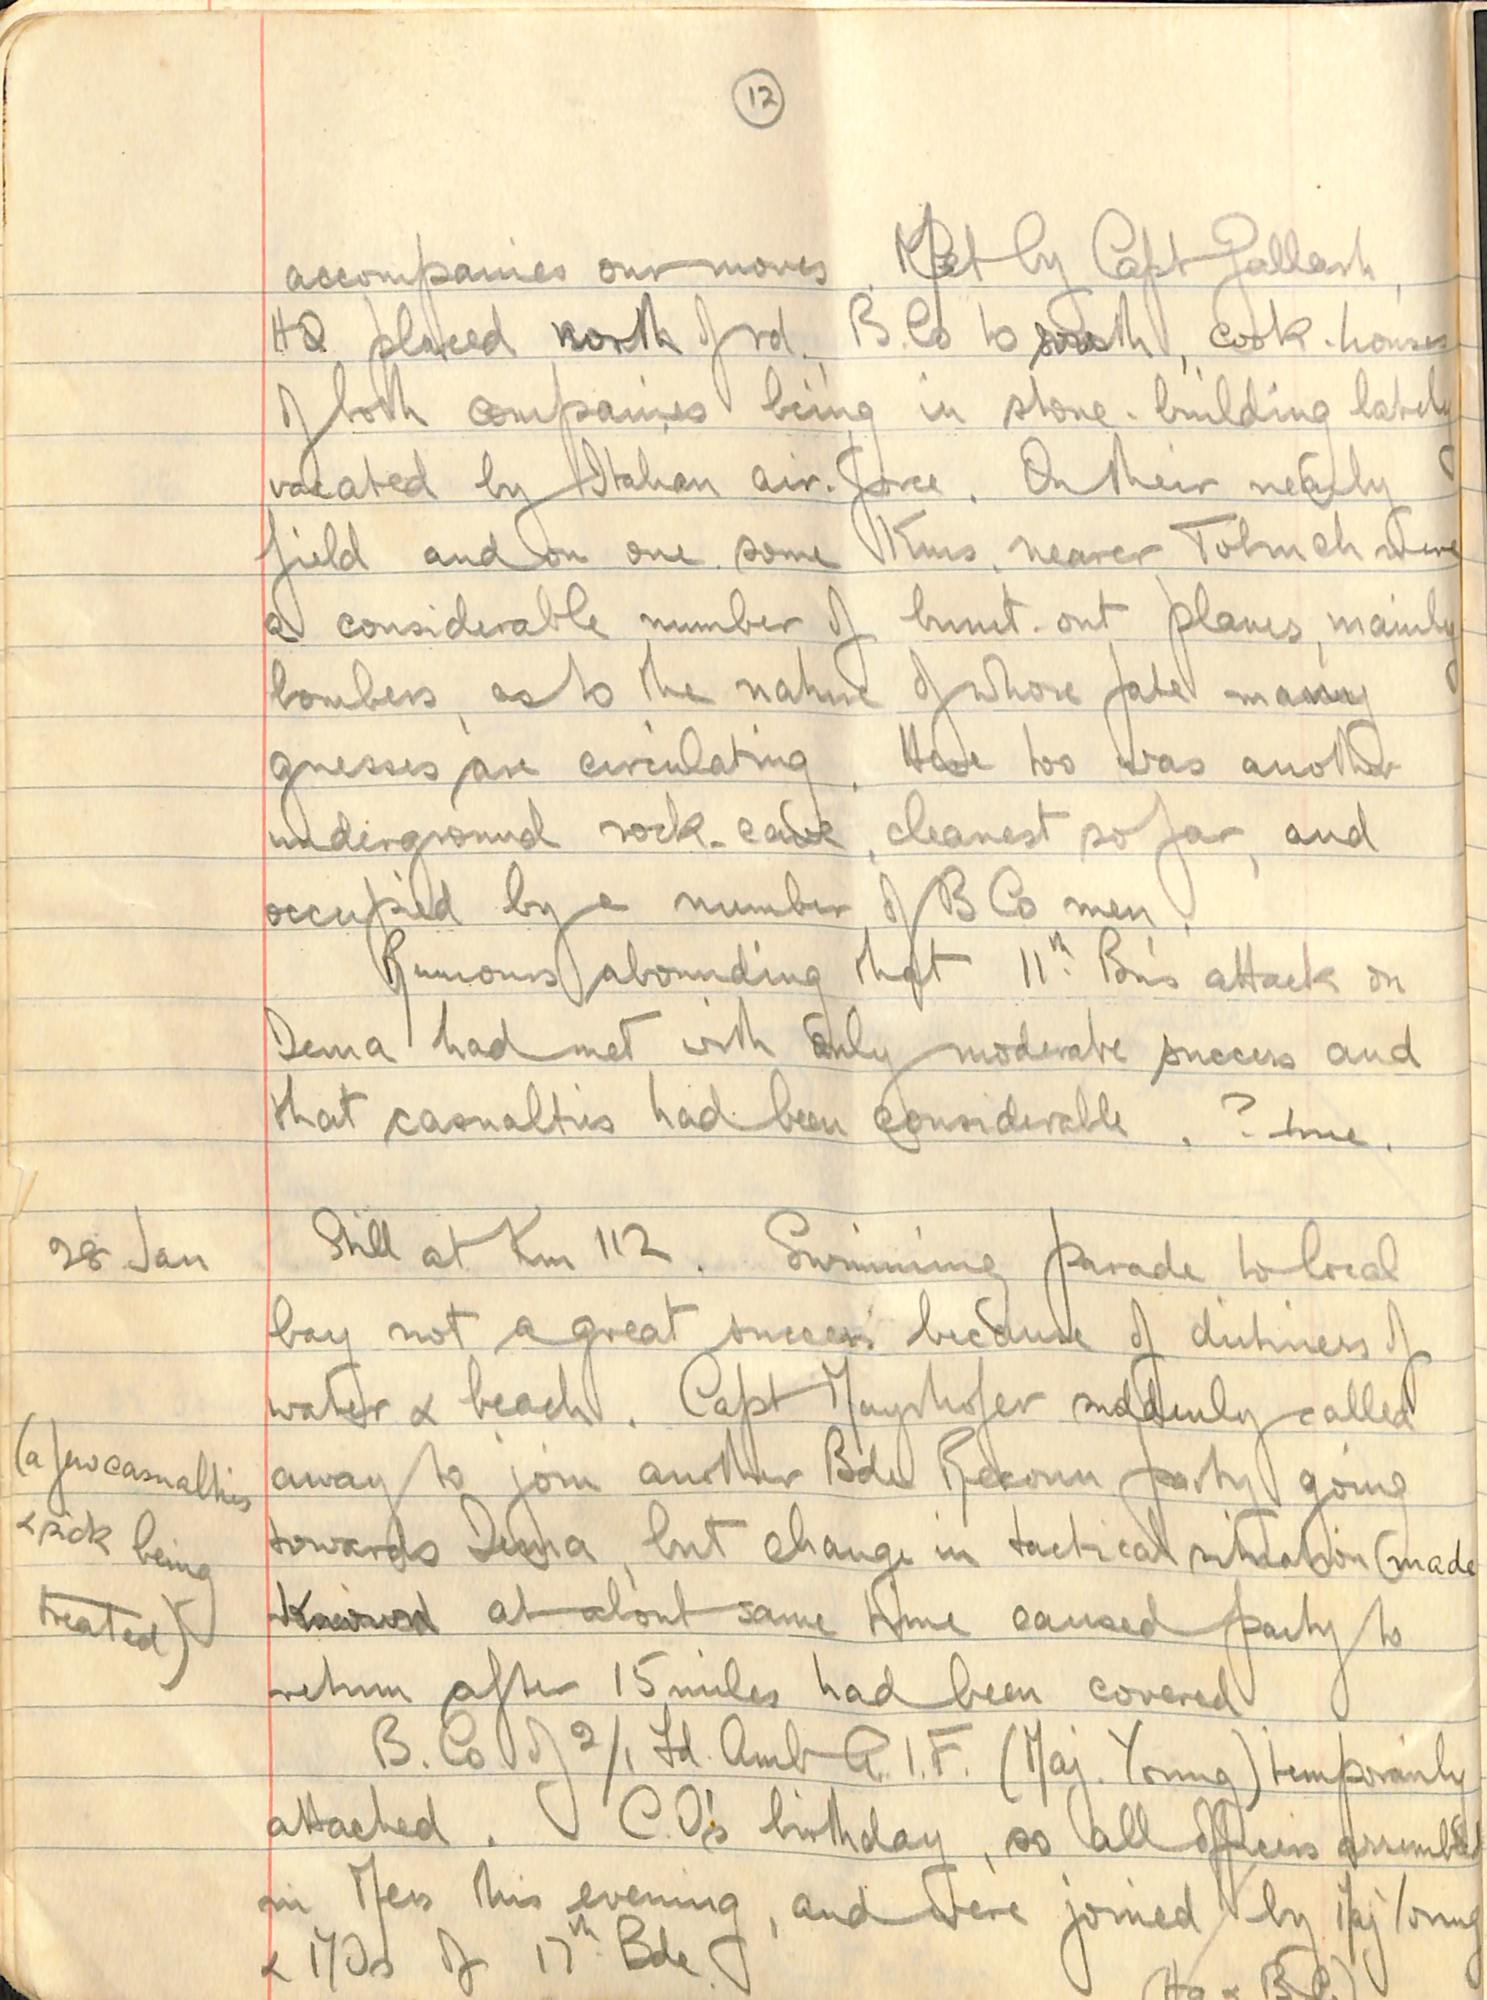 12
accompanies our moves. Met by Capt Gallash,
HQ placed north of rd., B.Co to south, cook-houses
of both companies being in stone-building lately
vacated by Italian air-force. On their nearby
field and on one some Kms. nearer Tobruch were
a considerable number of burnt-out planes, mainly
bombers, as to the nature of whose fate many
guesses are circulating. Here too was another
underground rock-cave, cleanest so far, and
occupied by a number of B Co men.
Rumours abounding that 11th Bn's attack on
Derna had met with only moderate success and
that casualties had been considerable. ? true.
28 Jan Still at Km 112. Swimming parade to local
bay not a great success because of dirtiness of
water & beach. Capt Mayrhofer suddenly called
(a few casualties
& sick being
treated)
away to join another Bde Reconn party going
towards Derna, but change in tactical situation (made
known at about same time caused party to
return after 15 miles had been covered
B. Co of 2/1 Fd. Amb A.I.F. (Maj. Young) temporarily
attached. C.O's birthday, so all officers assembled
in Mess this evening, and were joined by Maj Young
& MOs of 17th Bde.
(Hq & B.C.)